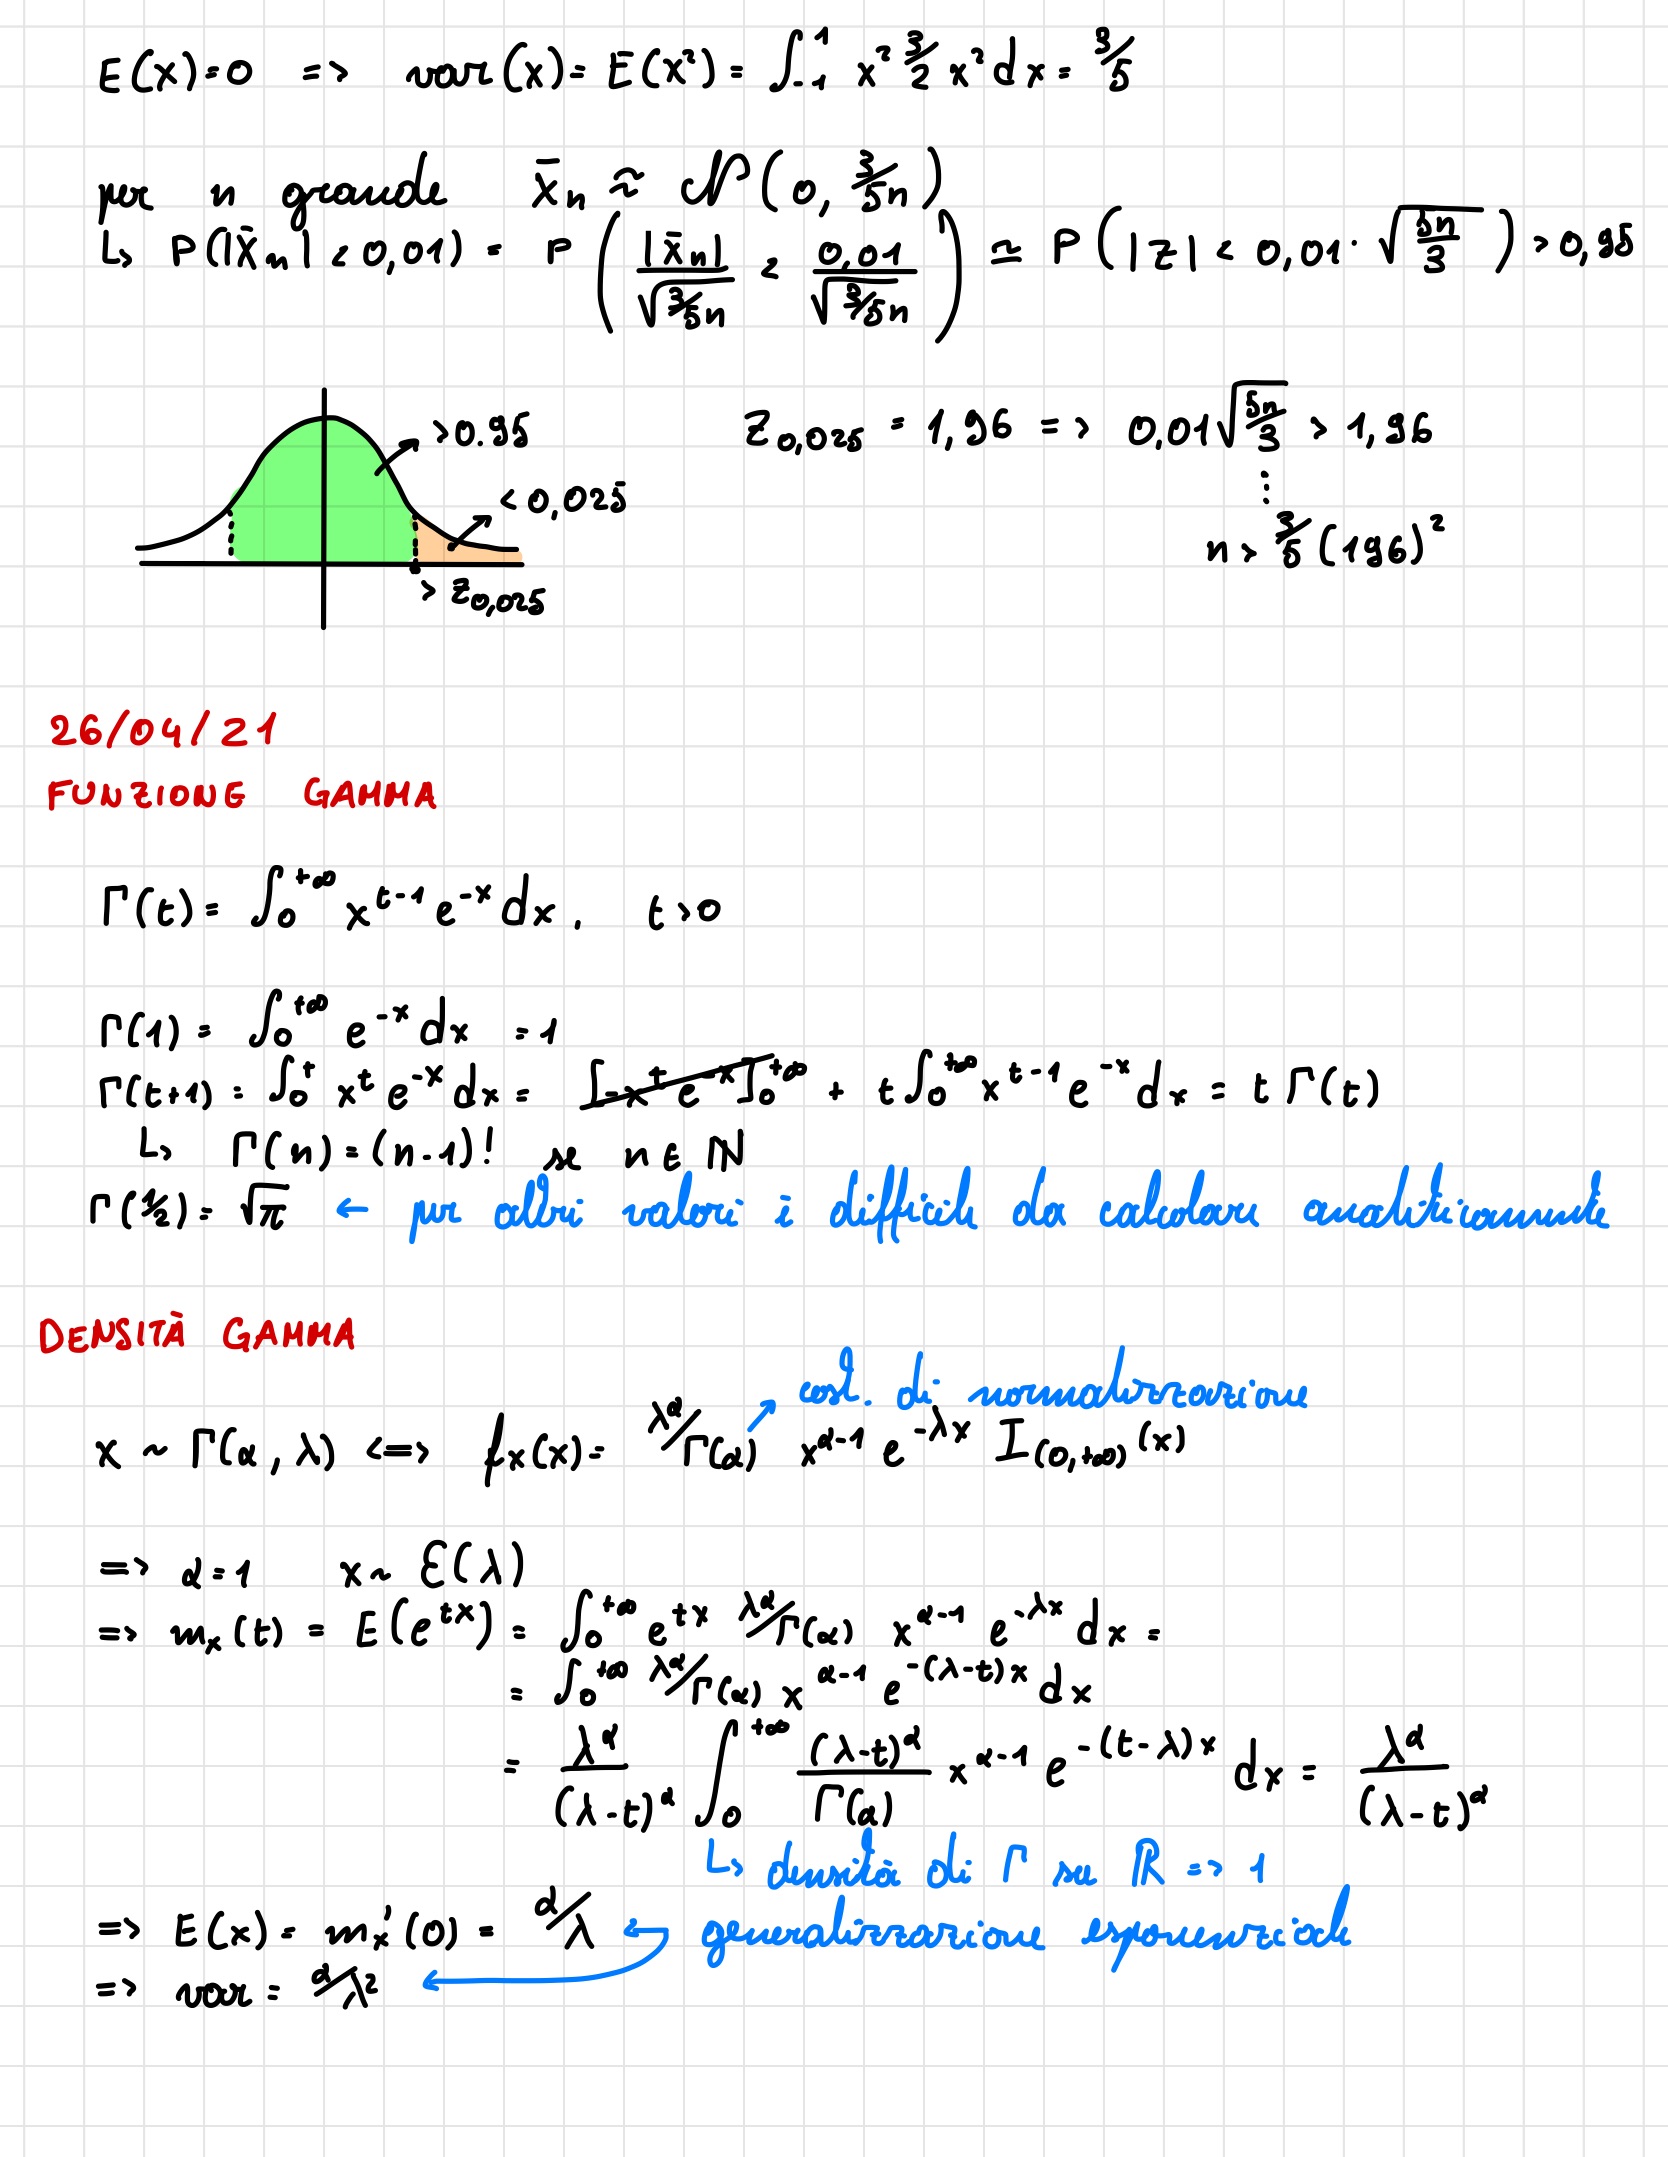 E(X)=0 => var(X)= E(X²)= ∫₋₁¹ x² 3/2 x² dx = 3/5
per n grande X̄n ≈ N(0, 3/5n)
↳ P(|X̄n| < 0,01) = P( |X̄n| / √(3/5n) < 0,01 / √(3/5n) ) ≃ P( |Z| < 0,01 · √(5n/3) ) > 0,95
>0.95
Z0,025 = 1,96 => 0,01 √(5n/3) > 1,96
< 0,025
⋮
n > 3/5 (196)²
> Z0,025
26/04/21
FUNZIONE GAMMA
Γ(t) = ∫₀^+∞ x^t-1 e^-x dx, t>0
Γ(1) = ∫₀^+∞ e^-x dx = 1
Γ(t+1) = ∫₀^t x^t e^-x dx = [-x^t e^-x]₀^+∞ + t ∫₀^+∞ x^t-1 e^-x dx = t Γ(t)
↳ Γ(n) = (n-1)! se n ∈ ℕ
Γ(1/2) = √π ← per altri valori è difficile da calcolare analiticamente
DENSITÀ GAMMA
cost. di normalizzazione
X ~ Γ(α, λ) <=> fx(x) = λ^α/Γ(α) x^α-1 e^-λx I(0,+∞)(x)
=> α = 1 X ~ ℰ(λ)
=> mx(t) = E(e^tx) = ∫₀^+∞ e^tx λ^α/Γ(α) x^α-1 e^-λx dx =
= ∫₀^+∞ λ^α/Γ(α) x^α-1 e^-(λ-t)x dx
= λ^α/(λ-t)^α ∫₀^+∞ (λ-t)^α/Γ(α) x^α-1 e^-(t-λ)x dx = λ^α/(λ-t)^α
↳ densità di Γ su ℝ => 1
=> E(x) = mx'(0) = α/λ ← generalizzazione esponenziale
=> var = α/λ² ←